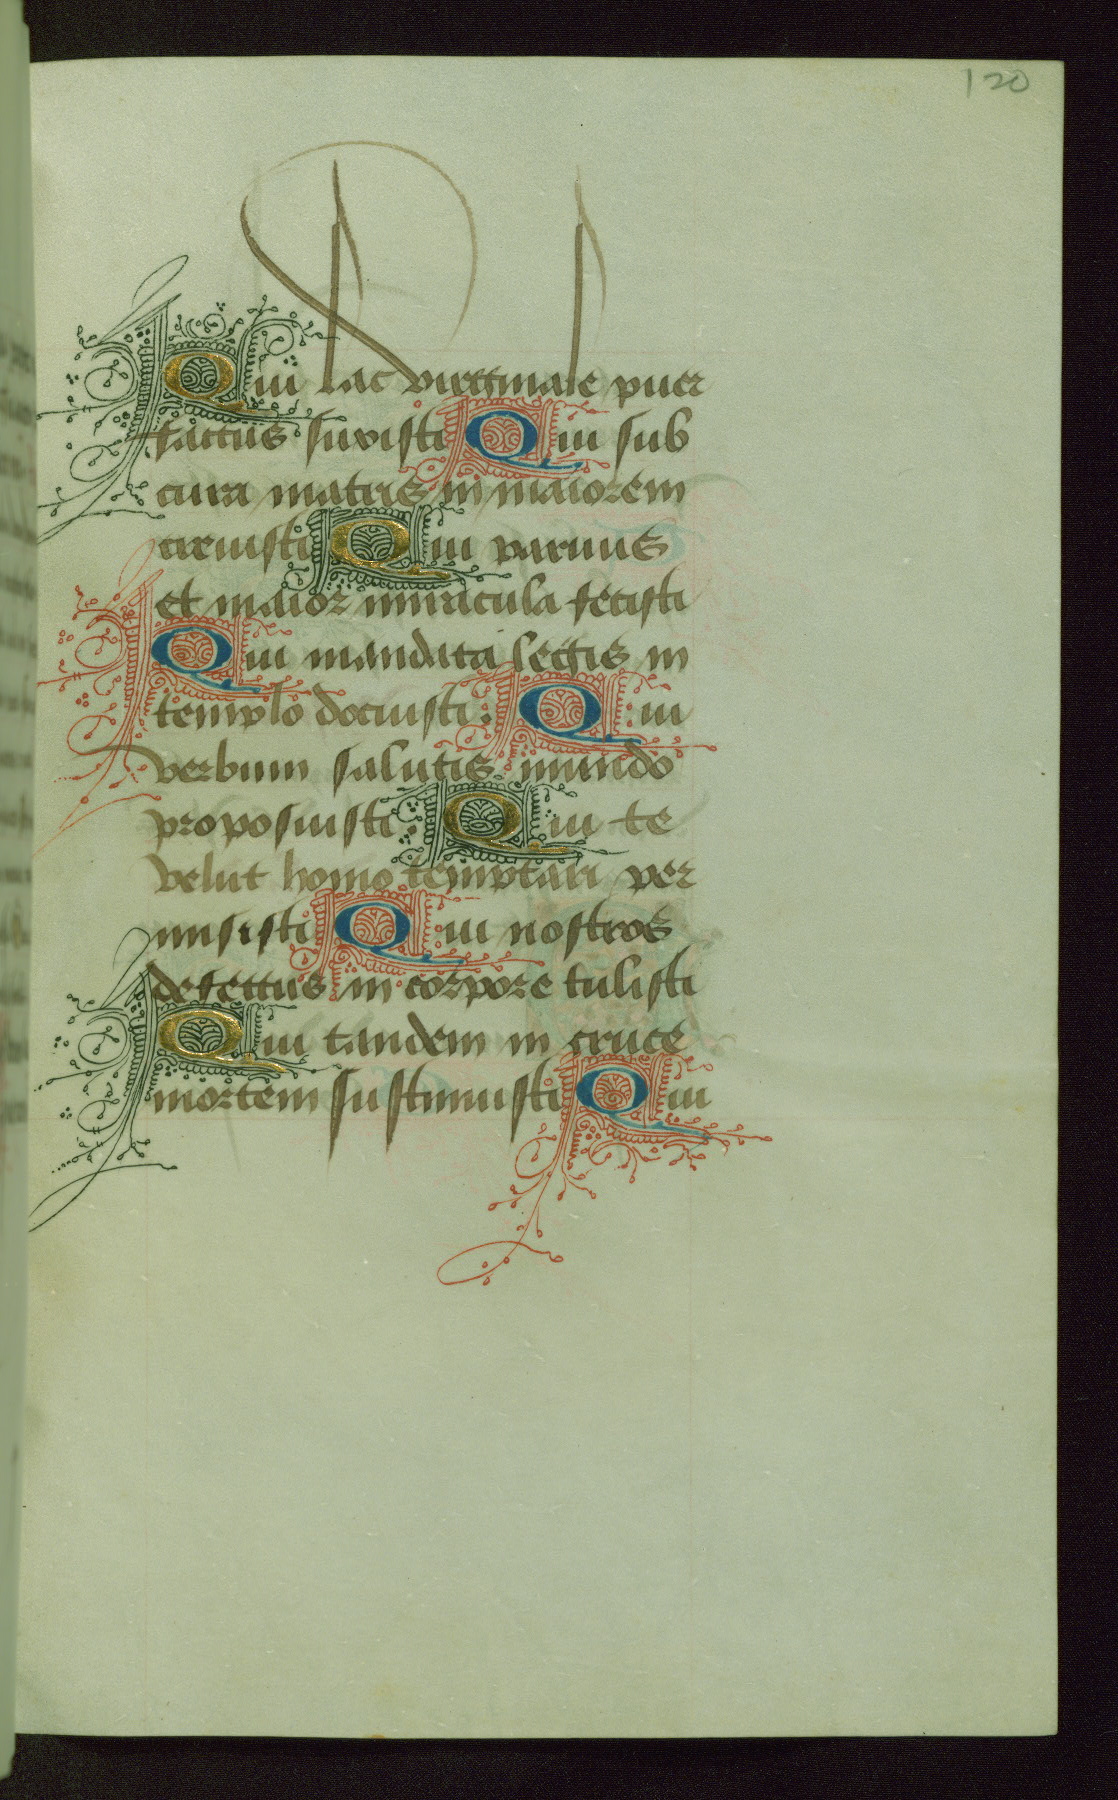 120
Qui lac virginale puer
factus suxisti Qui sub
cura matris in maiorem
crevisti Qui parvus
et maior miracula fecisti
Qui mandata legis in
templo docuisti. Qui
verbum salutis mundo
proposuisti Qui te
velut homo temptari per
misisti Qui nostros
defectus in corpore tulisti
Qui tandem in cruce
mortem sustinuisti Qui